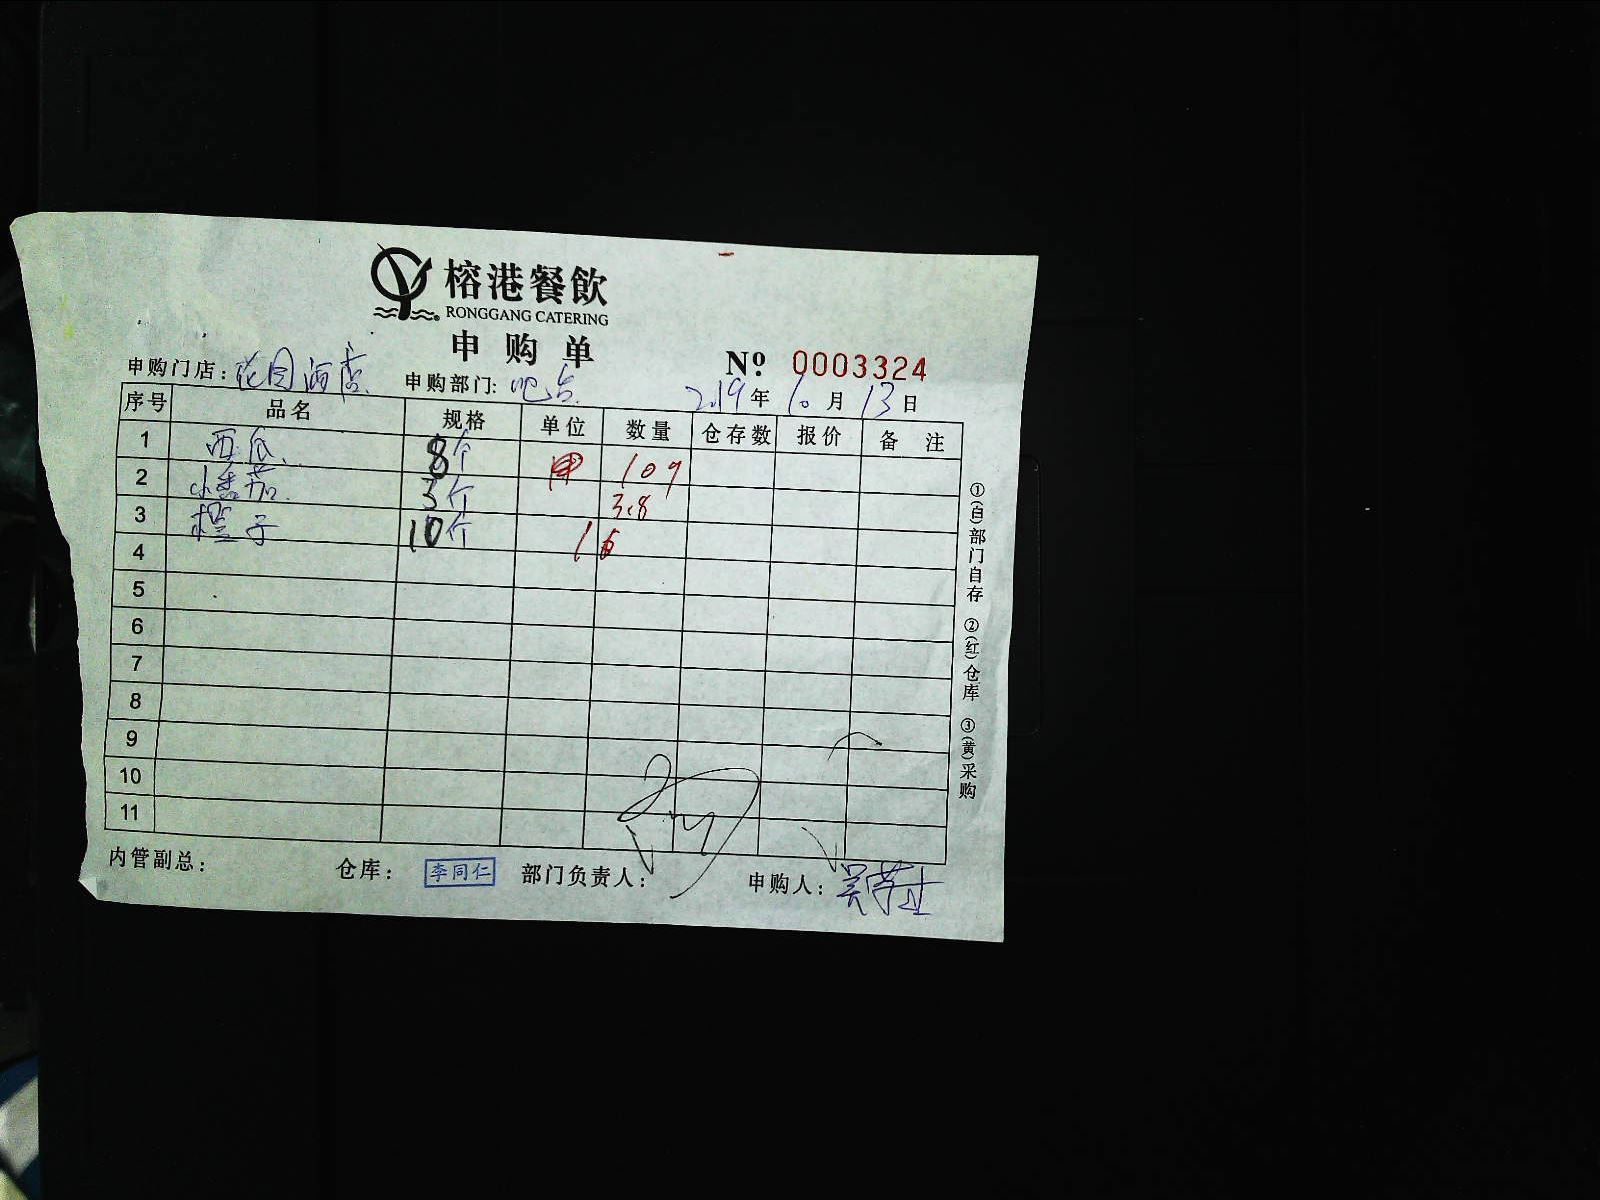 榕港餐飲
RONGGANG CATERING
申购单
№ 0003324
申购门店：花园酒店 申购部门：吧台 2019年10月13日
序号 品名 规格 单位 数量 仓存数 报价 备注
1 西瓜 8个 109
2 小番茄 3个 3.8
3 橙子 10个 16
4
5
6
7
8
9
10
11
①(白)部门自存 ②(红)仓库 ③(黄)采购
内管副总： 仓库：李同仁 部门负责人： 申购人：